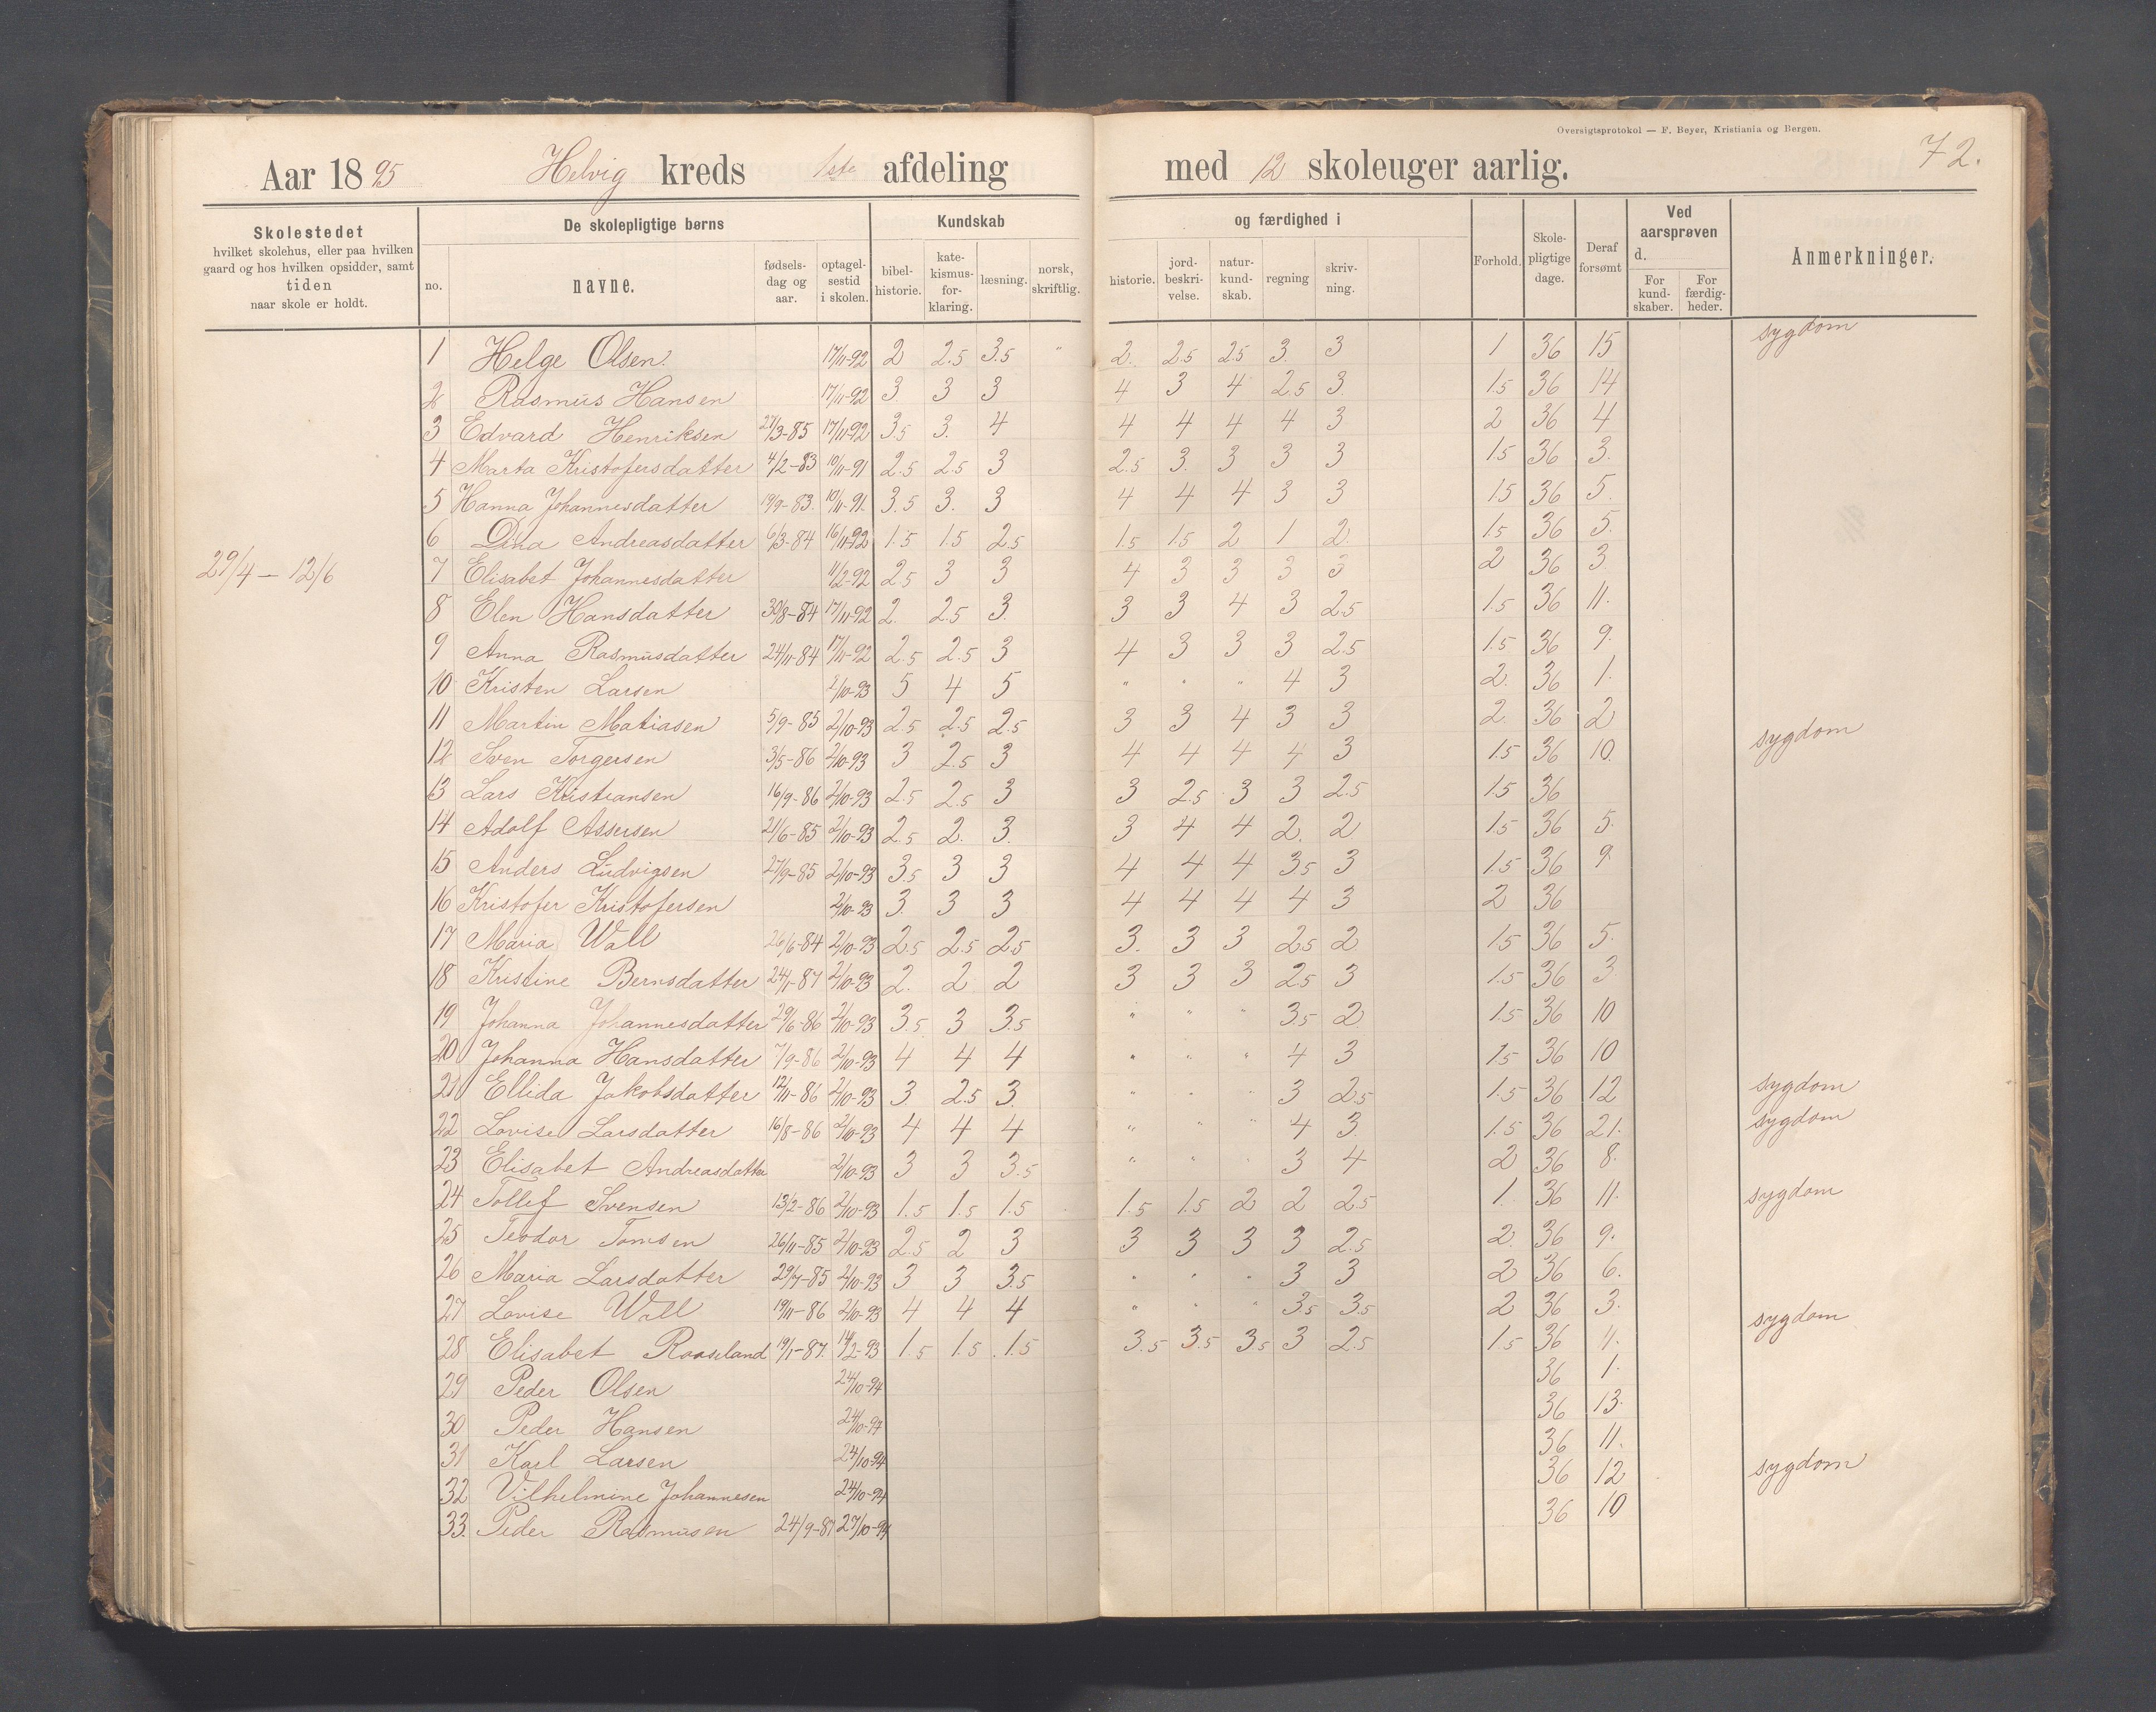 Oversigtsprotokol — F. Beyer, Kristiania og Bergen.
72.
Aar 1895 Helvig kreds 1ste afdeling med 12 skoleuger aarlig.
Skolestedet hvilket skolehus, eller paa hvilken gaard og hos hvilken opsidder, samt tiden naar skole er holdt.
De skolepligtige børns
no. navne. fødsels-dag og aar. optagel-sestid i skolen.
Kundskab og færdighed i
bibel-historie. kate-kismus-for-klaring. læsning. norsk, skriftlig. historie. jord-beskri-velse. natur-kund-skab. regning skriv-ning.
Forhold. Skole-pligtige dage. Deraf forsømt
Ved aarsprøven d.
For kund-skaber. For færdig-heder.
Anmerkninger.
29/4 – 12/6
1 Helge Olsen. 17/11-92 2 2.5 3.5 " 2. 2.5 2.5 3. 3 1 36 15 sygdom
2 Rasmus Hansen 17/11-92 3. 3 3 4 3 4 2.5 3. 1.5 36 14
3 Edvard Henriksen 27/3-85 17/11-92 3.5 3. 4 4 4 4 4 3 2 36 4
4 Marta Kristofersdatter 4/2-83 10/11-91 2.5 2.5 3 2.5 3. 3 3 3 1.5 36 3.
5 Hanna Johannesdatter 19/9-83. 10/11-91. 3.5 3. 3 4 4 4 3 3 1.5 36 5.
6 Dina Andreasdatter 6/3-84 16/11-92 1.5 1.5 2.5 1.5 1.5 2 1 2. 1.5 36 5.
7 Elisabet Johannesdatter 11/2-92 2.5 3 3 4 3 3 3 3 2 36 3
8 Elen Hansdatter 30/8-84 17/11-92 2. 2.5 3. 3 3 4 3 2.5 1.5 36 11.
9 Anna Rasmusdatter 24/11-84 17/11-92 2.5 2.5 3 4 3 3 3 2.5 1.5 36 9.
10 Kristen Larsen 2/10-93 5 4 5 " " " 4 3 2. 36 1.
11 Martin Matiasen 5/9-85 2/10-93 2.5 2.5 2.5 3 3 4 3 3 2. 36 2
12 Sven Torgersen 3/5-86 2/10-93 3 2.5 3 4 4 4 4 3 1.5 36 10. sygdom
13 Lars Kristiansen 16/9-86 2/10-93 2.5 2.5 3 3 2.5 3 3 2.5 1.5 36
14 Adolf Assersen 21/6-85 2/10-93 2.5 2. 3. 3 4 4 2. 2 1.5 36 5.
15 Anders Ludvigsen 27/9-85 2/10-93 3.5 3 3 4 4 4 3.5 3 1.5 36 9.
16 Kristofer Kristofersen 2/10-93 3. 3 3 4 4 4 4 3 2 36
17 Maria Wall 26/6-84 2/10-93 2.5 2.5 2.5 3. 3 3 2.5 2 1.5 36 5.
18 Kristine Bernsdatter 24/1-87 2/10-93 2. 2 2 3 3 3 2.5 3 1.5 36 3.
19 Johanna Johannesdatter 29/6-86 2/10-93 3.5 3 3.5 " " " 3.5 2 1.5 36 10
20 Johanna Hansdatter 7/9-86 2/10-93 4 4 4 " " " 4 3 1.5 36 10
21 Ellida Jakobsdatter 12/11-86 2/10-93 3. 2.5 3. " " " 3 2.5 1.5 36 12 sygdom
22 Lovise Larsdatter 16/8-86 2/10-93 4 4 4 " " " 4 3. 1.5 36 21. sygdom
23 Elisabet Andreasdatter 2/10-93 3 3 3.5 " " " 3 4 2 36 8.
24 Tollef Svensen 13/2-86 2/10-93 1.5 1.5 1.5 1.5 1.5 2 2 2.5 1. 36 11. sygdom
25 Teodor Tomsen 26/11-85 2/10-93 2.5 2 3 3 3 3 3 2.5 2. 36 9.
26 Maria Larsdatter 29/7-85 2/10-93 3 3 3.5 " " " 3 3 2 36 6.
27 Lovise Wall 19/11-86 2/10-93 4 4 4 " " " 3.5 3.5 2 36 3. sygdom
28 Elisabet Roaseland 19/1-87. 14/2-93 1.5 1.5 1.5 3.5 3.5 3.5 3 2.5 1.5 36 11.
29 Peder Olsen 24/10-94 36 1.
30 Peder Hansen 24/10-94 36 13.
31 Karl Larsen 24/10-94 36 11.
32 Vilhelmine Johannesen 24/10-94 36 12 sygdom
33. Peder Rasmusen 24/9-87 27/10-94 36 10